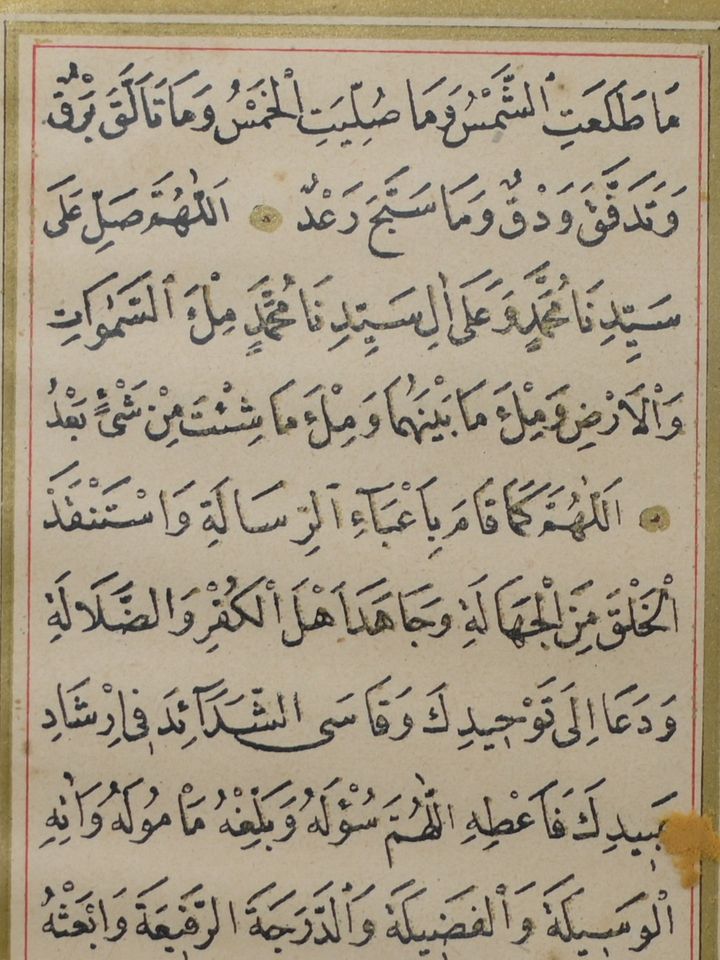 مَا طَلَعَتِ ٱلشَّمْسُ وَمَا صُلِّيَتِ ٱلْخَمْسُ وَمَا تَاَلَّقَ بَرْقٌ
وَتَدَفَّقَ وَدْقٌ وَمَا سَبَّحَ رَعْدٌ ۞ اَللّٰهُمَّ صَلِّ عَلَى
سَيِّدِنَا مُحَمَّدٍ وَعَلَى اٰلِ سَيِّدِنَا مُحَمَّدٍ مِلْءَ ٱلسَّمٰوَاتِ
وَٱلْاَرْضِ وَمِلْءَ مَا بَيْنَهُمَا وَمِلْءَ مَا شِئْتَ مِنْ شَىْءٍ بَعْدُ
۞ اَللّٰهُمَّ كَمَا قَامَ بِاَعْبَآءِ ٱلرِّسَالَةِ وَاسْتَنْقَذَ
ٱلْخَلْقَ مِنَ ٱلْجَهَالَةِ وَجَاهَدَ اَهْلَ ٱلْكُفْرِ وَالضَّلَالَةِ
وَدَعَا اِلَى تَوْحِيدِكَ وَقَاسَى الشَّدَآئِدَ فِى اِرْشَادِ
عَبِيدِكَ فَاَعْطِهِ اللّٰهُمَّ سُؤْلَهُ وَبَلِّغْهُ مَاْمُولَهُ وَاٰتِهِ
الْوَسِيلَةَ وَٱلْفَضِيلَةَ وَٱلدَّرَجَةَ الرَّفِيعَةَ وَابْعَثْهُ